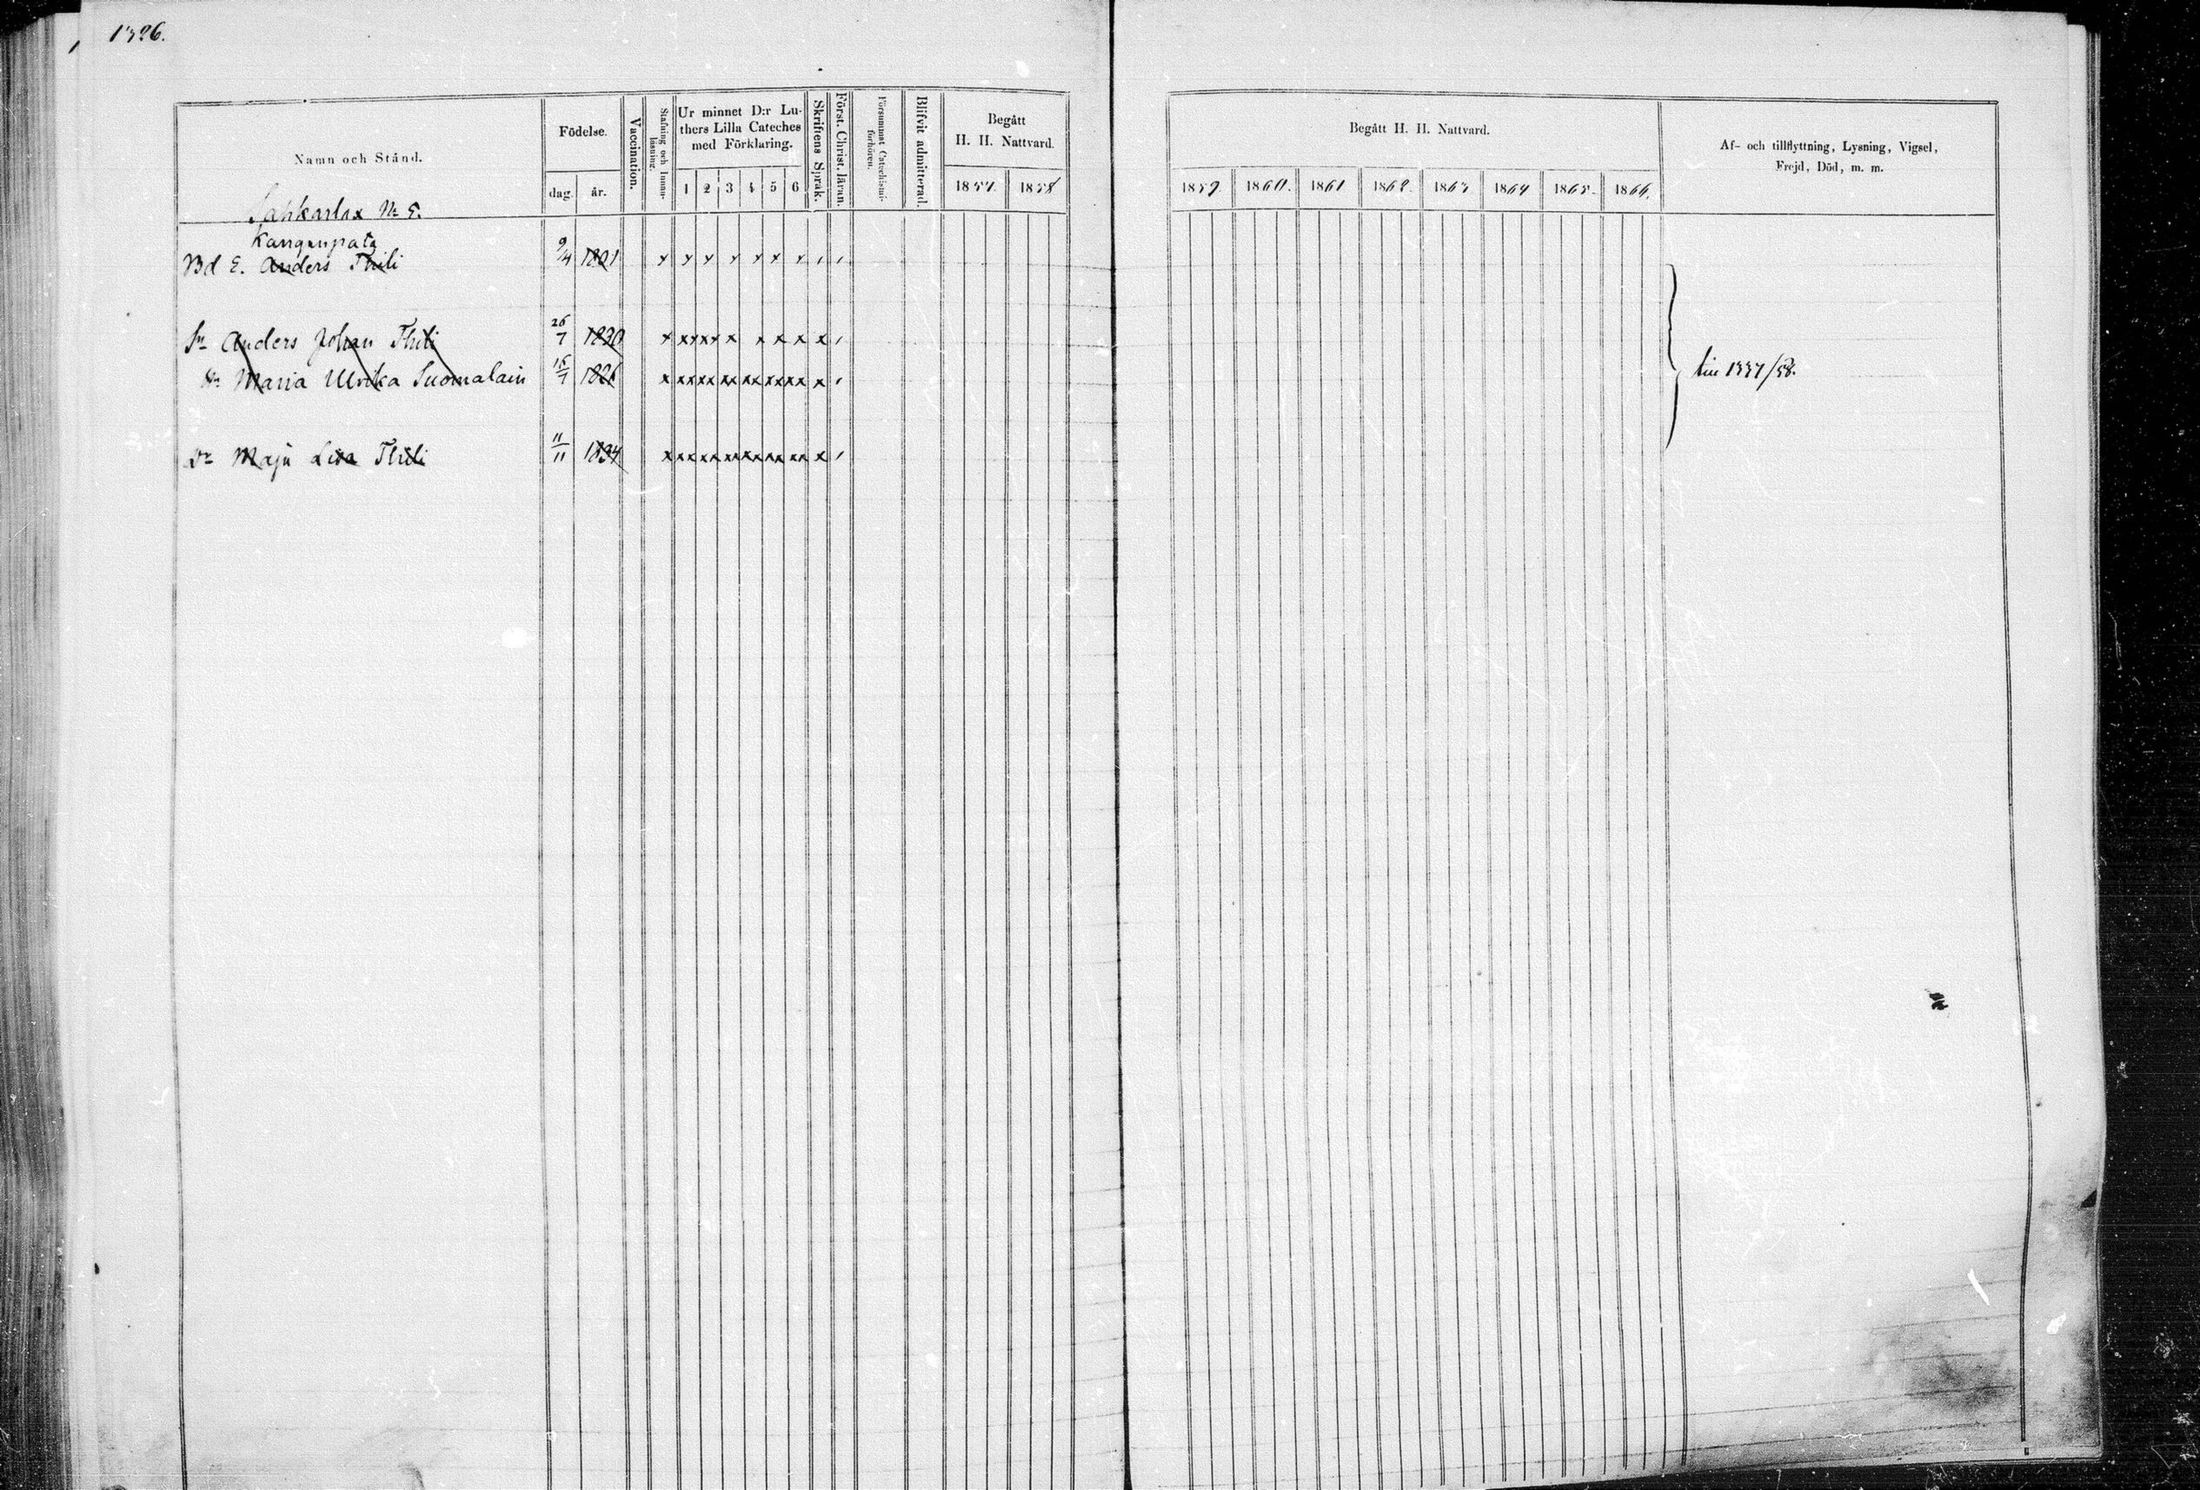 1326.
Namn och Stånd.
Födelse.
dag.
år.
Vaccination.
Stafning och Innanläsning.
Ur minnet D:r Lu-
thers Lilla Cateches
med Förklaring.
1 2 3 4 5 6
Skriftens Språk.
Först. Christ. läran.
Försummat Catechismi-
förhören.
Blifvit admitterad.
Begått
H. H. Nattvard.
1857. 1858
Begått H. H. Nattvard.
1859. 1860. 1861 1862. 1863 1864 1865. 1866.
Af- och tillflyttning, Lysning, Vigsel,
Frejd, Död, m. m.
N 5.
Bd E. Anders Thili 9/4 1801
Sn Anders Johan Thili 26/7 1830
Hu Maria Ulrika Suomalain 16/7 1826
Dr Maja Lisa Thili 11/11 1834
1337/58.